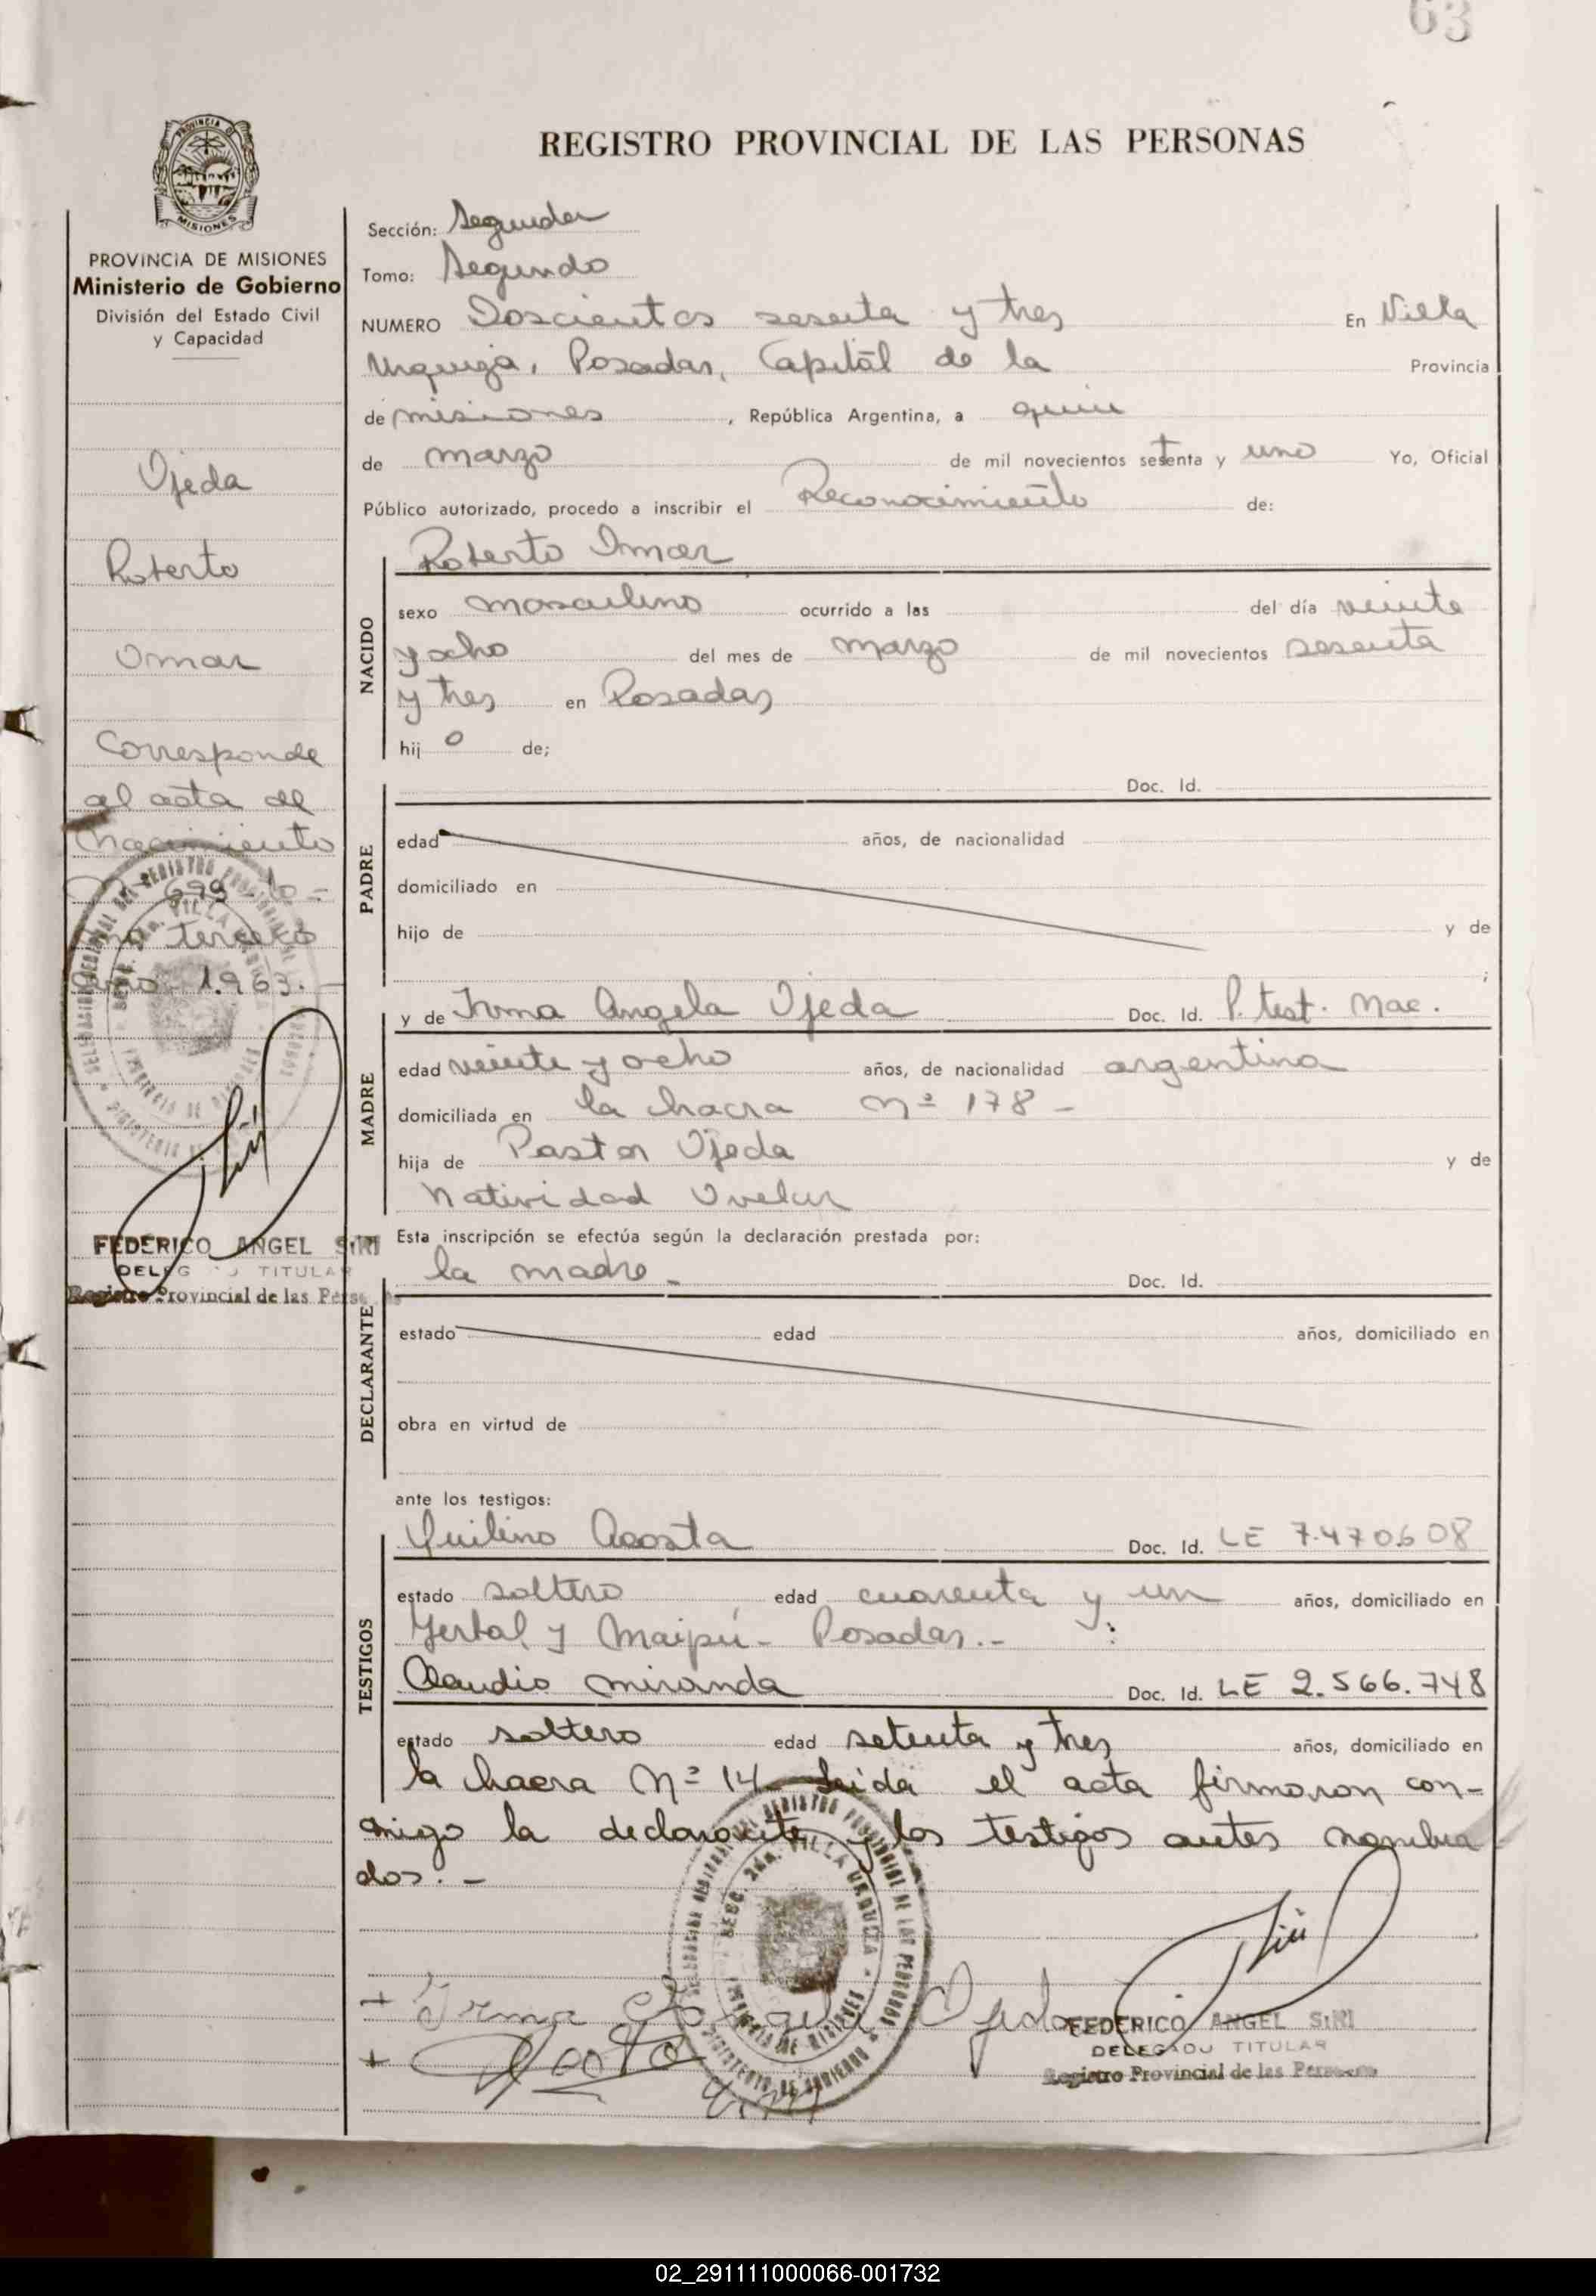 63
REGISTRO PROVINCIAL DE LAS PERSONAS
MISIONES
PROVINCIA DE MISIONES
Ministerio de Gobierno
División del Estado Civil
y Capacidad
Ojeda
Roberto
Omar
Corresponde
al acta de
Nacimiento
Nº 699 to-
mo tercero
año 1.963.-
FEDERICO ANGEL SIRI
DELEG TITULAR
Registro Provincial de las Perso
Sección: Segunda
Tomo: Segundo
NUMERO Doscientos sesenta y tres En Villa
Urquiza, Posadas, Capital de la Provincia
de misiones, República Argentina, a
de marzo de mil novecientos setenta y uno Yo, Oficial
Público autorizado, procedo a inscribir el Reconocimiento de:
Roberto Omar
NACIDO
sexo masculino ocurrido a las del día veinte
y ocho del mes de marzo de mil novecientos sesenta
y tres en Posadas
hij o de;
PADRE
Doc. Id.
edad años, de nacionalidad
domiciliado en
hijo de y de
;
MADRE
y de Irma Angela Ojeda Doc. Id. P. test. Nac.
edad veinte y ocho años, de nacionalidad argentina
domiciliada en la chacra nº 178 -
hija de Pastor Ojeda y de
Natividad Ovelar
Esta inscripción se efectúa según la declaración prestada por:
DECLARANTE
la madre - Doc. Id.
estado edad años, domiciliado en
obra en virtud de
ante los testigos:
TESTIGOS
Quilino Acosta Doc. Id. LE 7.470.608
estado soltero edad cuarenta y un años, domiciliado en
Yerbal y Maipú - Posadas.-
Claudio miranda Doc. Id. LE 2.566.748
estado soltero edad setenta y tres años, domiciliado en
la chacra Nº 14 Leida el acta firmaron con-
migo la declarante y los testigos antes nombra
dos. -
+ Irma Angela Ojeda
+ Acosta
FEDERICO ANGEL SIRI
DELEGADO TITULAR
Registro Provincial de las Personas
02_291111000066-001732